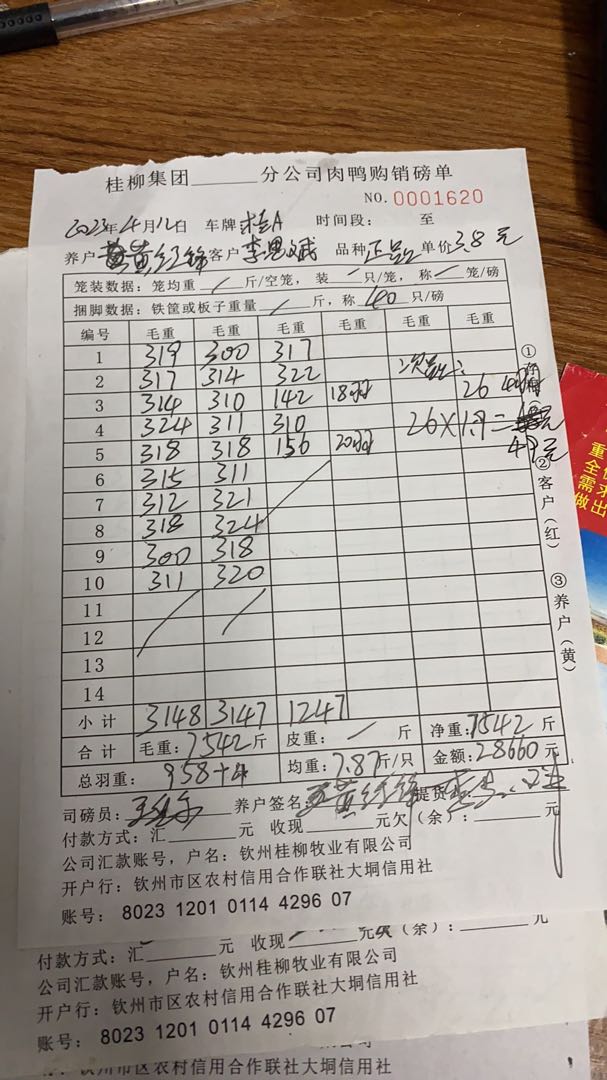 桂柳集团______分公司肉鸭购销磅单
NO. 0001620
2023年4月12日 车牌 桂A 时间段： 至
养户 黄红锋 客户 李思斌 品种 正品 单价 3.8 元
笼装数据：笼均重 / 斤/空笼，装 / 只/笼，称 / 笼/磅
捆脚数据：铁筐或板子重量 / 斤，称 40 只/磅
编号 毛重 毛重 毛重 毛重 毛重 毛重
1 319 300 317
2 317 314 322 次品：
3 314 310 142 18羽 26 4羽
4 324 311 310 26×1.9=
5 318 318 156 20羽 49元
6 315 311
7 312 321
8 318 324
9 300 318
10 311 320
11
12
13
14
小计 3148 3147 1247
合计 毛重：7542 斤 皮重： / 斤 净重：7542 斤
总羽重： 958+4 均重：7.87斤/只 金额：28660 元
司磅员： 养户签名： 黄红锋 提货
付款方式：汇______元 收现______元欠（余）：______元
公司汇款账号，户名：钦州桂柳牧业有限公司
开户行：钦州市区农村信用合作联社大垌信用社
账号：8023 1201 0114 4296 07
①
②客户（红）
③养户（黄）
付款方式：汇______元 收现______元欠（余）：______元
公司汇款账号，户名：钦州桂柳牧业有限公司
开户行：钦州市区农村信用合作联社大垌信用社
账号：8023 1201 0114 4296 07
公司
钦州市区农村信用合作联社大垌信用社
重
全价
需求
做出